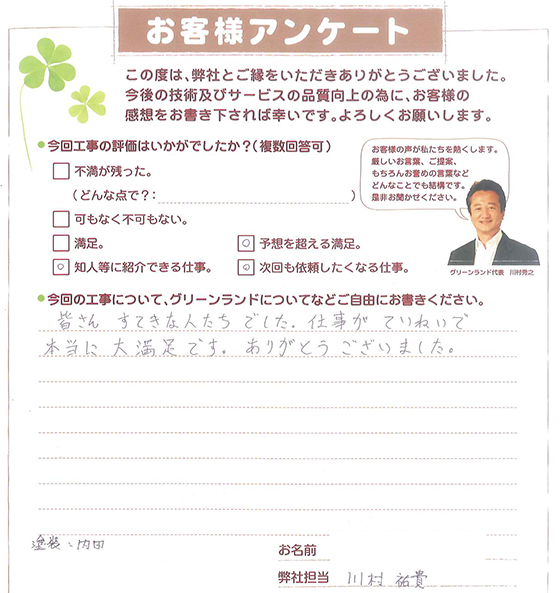 お客様アンケート
この度は、弊社とご縁をいただきありがとうございました。
今後の技術及びサービスの品質向上の為に、お客様の
感想をお書き下されば幸いです。よろしくお願いします。
●今回工事の評価はいかがでしたか？(複数回答可)
□不満が残った。
(どんな点で？: )
□可もなく不可もない。
□満足。
予想を超える満足。
知人等に紹介できる仕事。
次回も依頼したくなる仕事。
お客様の声が私たちを熱くします。
厳しいお言葉、ご提案、
もちろんお誉めの言葉など
どんなことでも結構です。
是非お聞かせください。
グリーンランド代表 川村秀之
●今回の工事について、グリーンランドについてなどご自由にお書きください。
皆さん すてきな人たち でした. 仕事が ていねいで
本当に 大満足です. ありがとう ございました。
塗装:内田
お名前
弊社担当 川村 祐貴